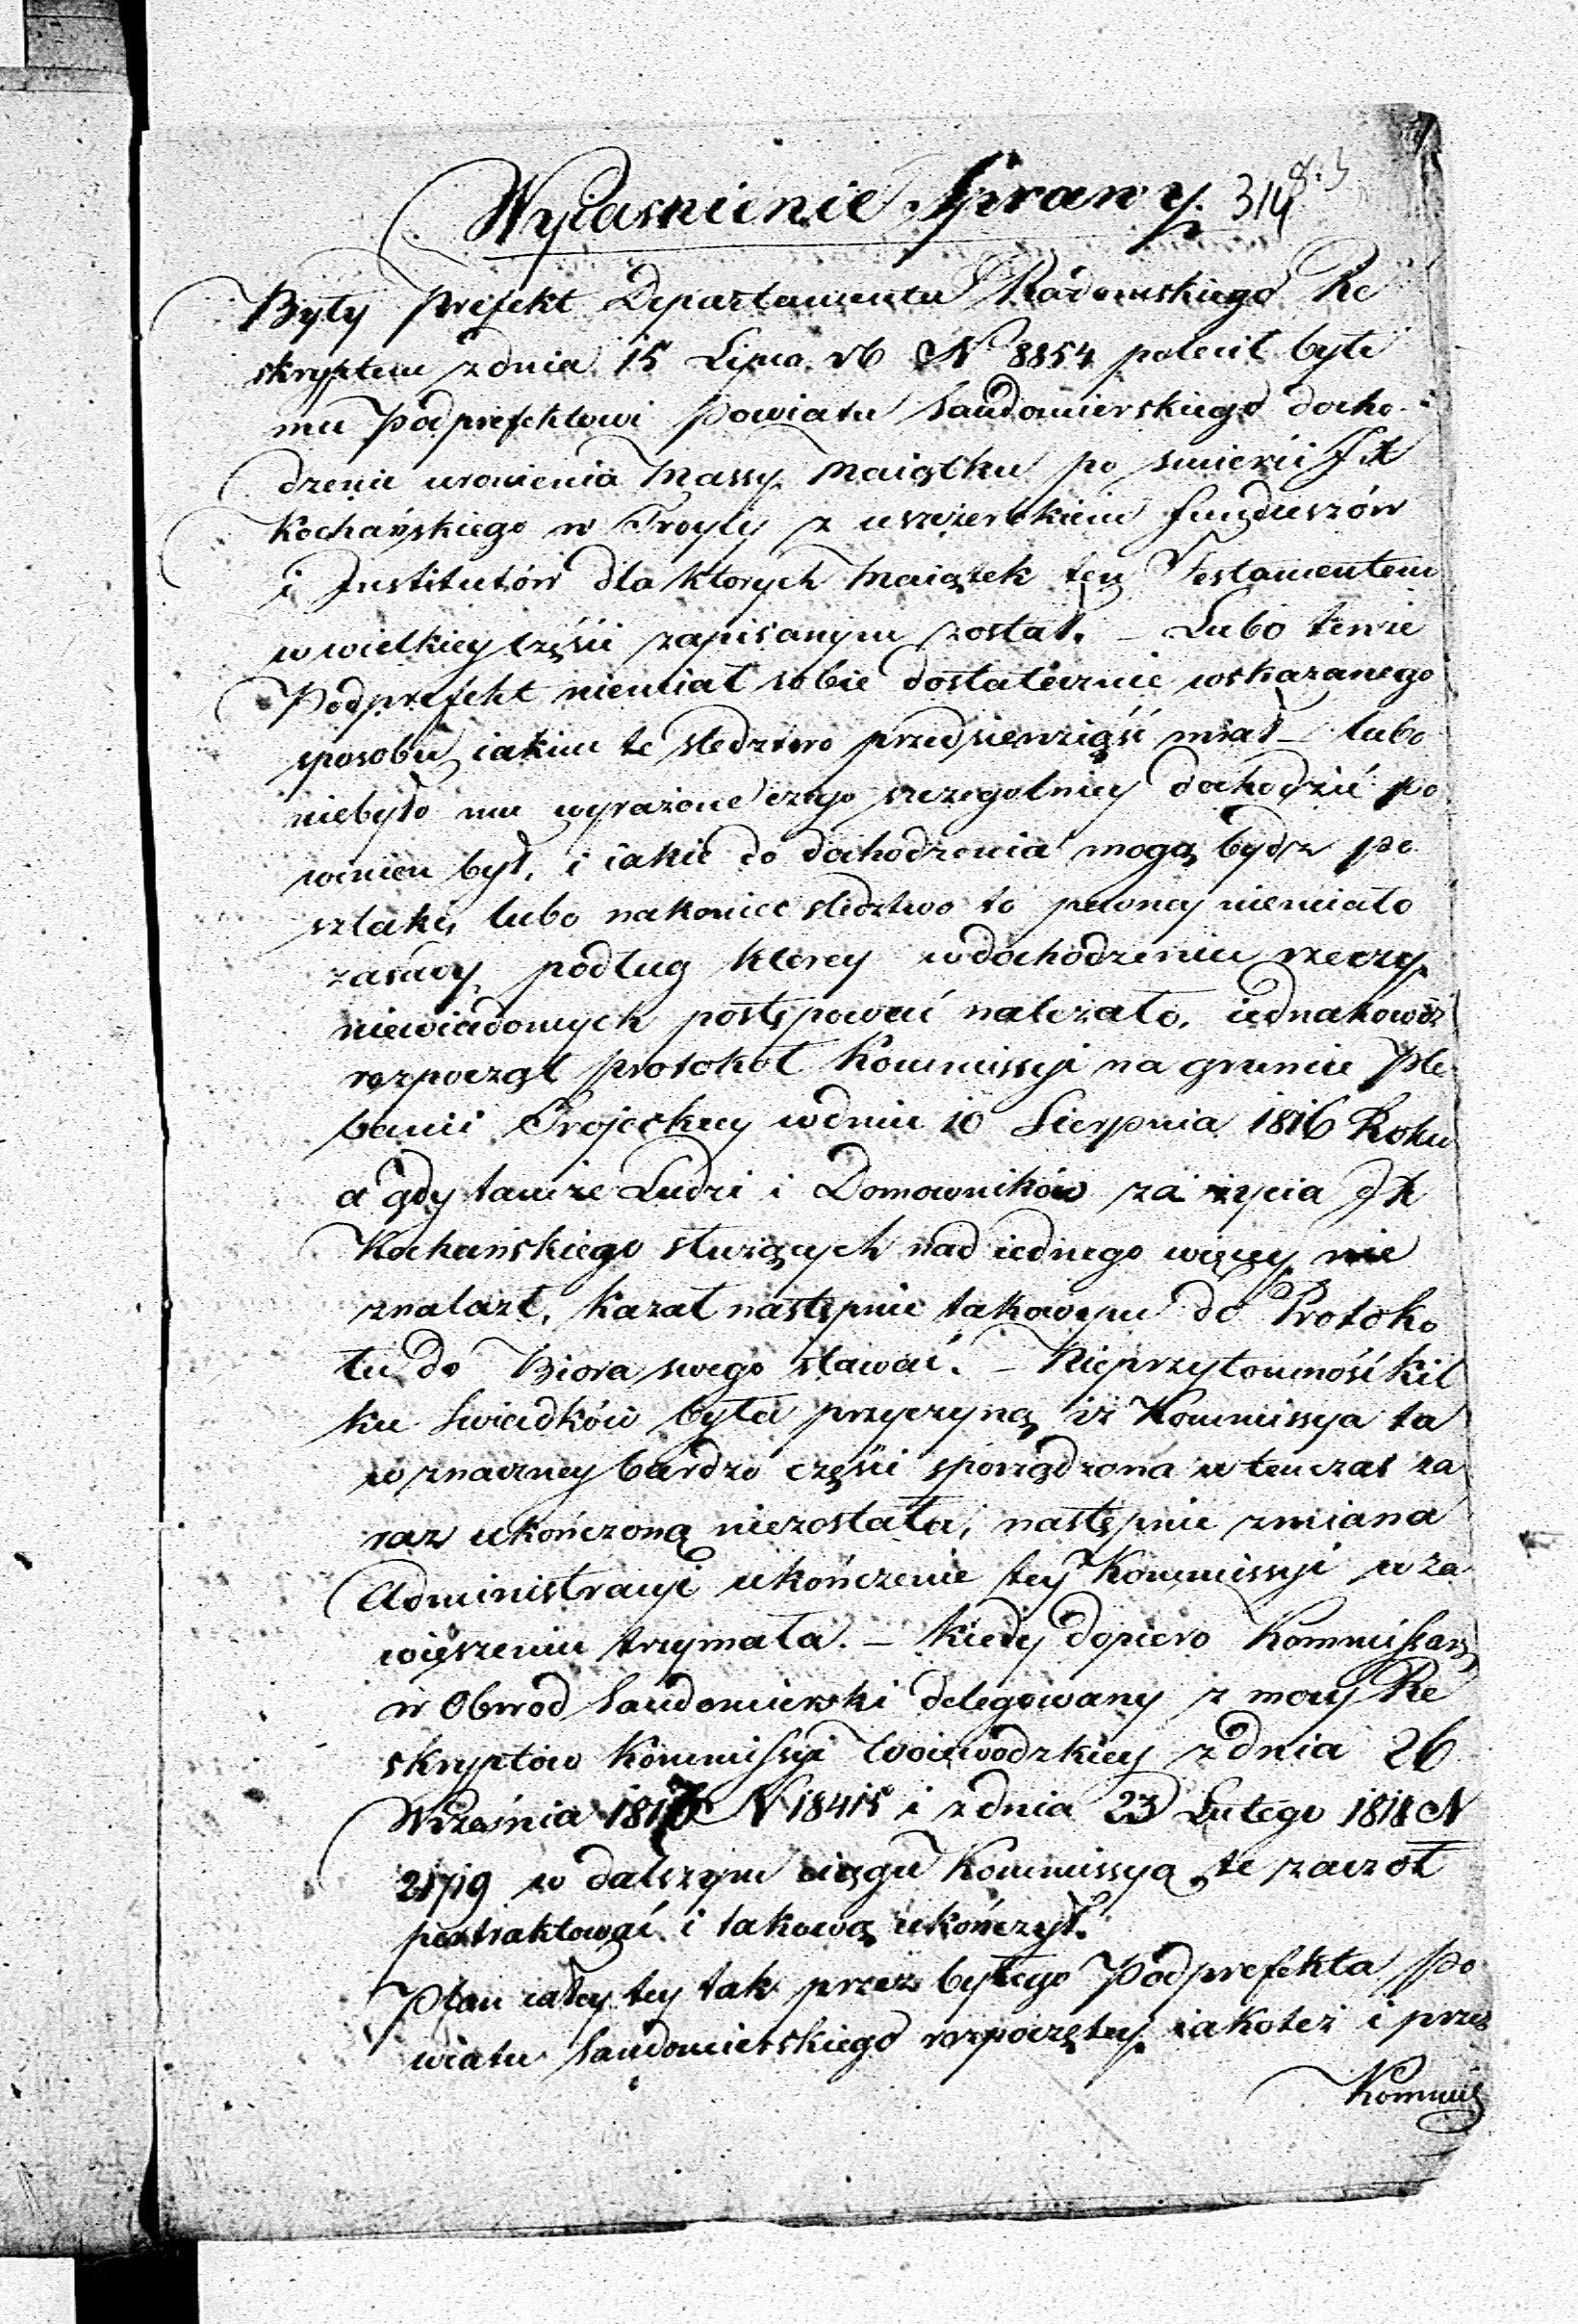 Wyiasnienie Sprawy. 314
Były Prefekt Departamentu Radomskiego Re
skryptem z dnia 15 Lipca rb N 8854 polecił byłe
mu Podprefektowi Powiatu Sandomierskiego docho
dzenie uronienia Massy Maiątku po smierci JX
Kochańskiego w Troycy z uszczerbkiem funduszów
i Institutów dla ktorych Maiątek ten Testamentem
w wielkiey części zapisanym został. – Lubo tenże
Podprefekt niemiał sobie dostatecznie wskazanego
sposobu iakim te sledztwo przedsiewziąść miał – lubo
niebyło mu wyrażone czego szczegolniey dochodzić po
winien był, i iakie do dochodzenia mogą bydz po
szlaki, lubo nakoniec sledztwo to pewney niemiało
zasady podług ktorey w dochodzeniu rzeczy
niewiadomych postępować należało, iednakowoż
rozpoczął protokoł Kommissyi na gruncie Ple
banii Trojeckiey w dniu 10 Sierpnia 1816 Roku
a gdy tamże Ludzi i Domowników za życia JX
Kochańskiego służących nad iednego więcey nie
znalazł, kazał następnie takowemu do Protoko
łu do Biora swego stawać. – Nieprzytomność kil
ku Swiadków była przyczyną iż Kommissya ta
w znaczney bardzo części sporządzona w tenczas za
raz ukończoną niezostała, następnie zmiana
Administracyi ukończenie tey Kommissyi w za
wieszeniu trzymała. – Kiedy dopiero Kommissarz
w Obwod Sandomierski delegowany z mocy Re
skryptów Kommissyi Woiewodzkiey z dnia 26
Września N 18415 i z dnia 23 Lutego 1818 N
w dalszym ciągu Kommissyą te zaczoł
pertraktować i takową ukończył.
Plan całey tey tak przez byłego Podprefekta Po
wiatu Sandomierskiego rozpoczętey iakoteż i przez
Kommis